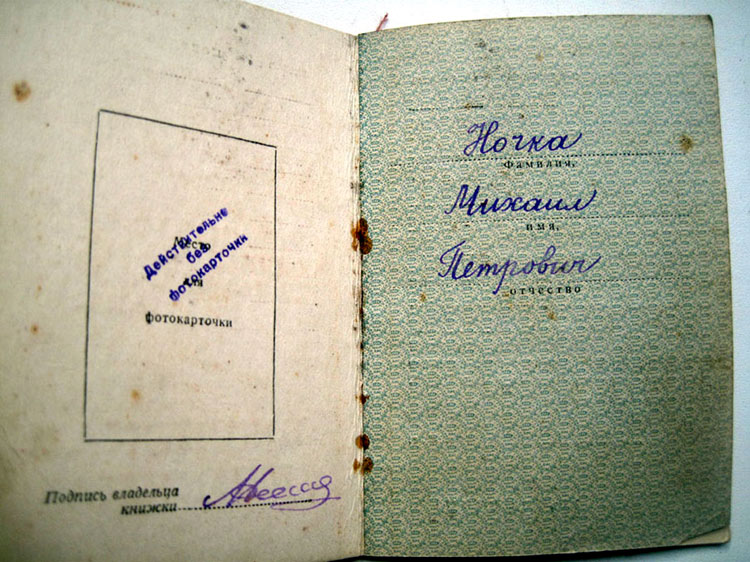 Место
Действительне
без
фотокарточки
для
фотокарточки
Подпись владельца
книжки
Ночка
фамилия,
Михаил
имя,
Петрович
отчество